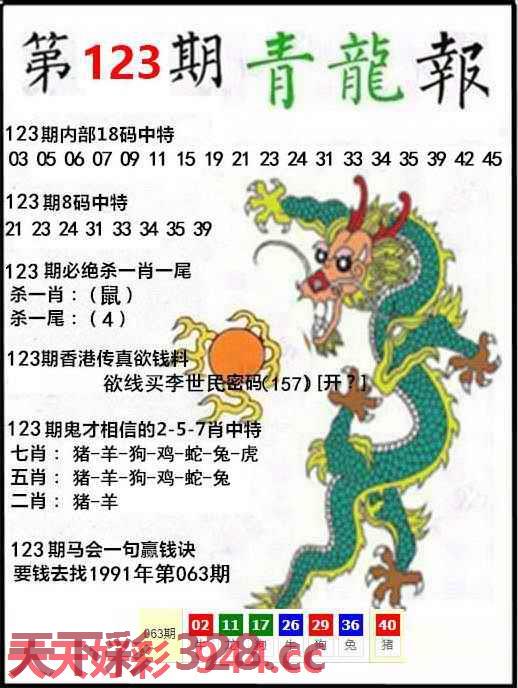 第123期青龍報
123期内部18码中特
03 05 06 07 09 11 15 19 21 23 24 31 33 34 35 39 42 45
123期8码中特
21 23 24 31 33 34 35 39
123期必绝杀一肖一尾
杀一肖：（鼠）
杀一尾：（4）
123期香港传真欲钱料
欲线买李世民密码(157) [开？]
123期鬼才相信的2-5-7肖中特
七肖： 猪-羊-狗-鸡-蛇-兔-虎
五肖： 猪-羊-狗-鸡-蛇-兔
二肖： 猪-羊
123期马会一句赢钱诀
要钱去找1991年第063期
063期 02 11 17 26 29 36 40
狗 兔 猪
天下好彩
.cc